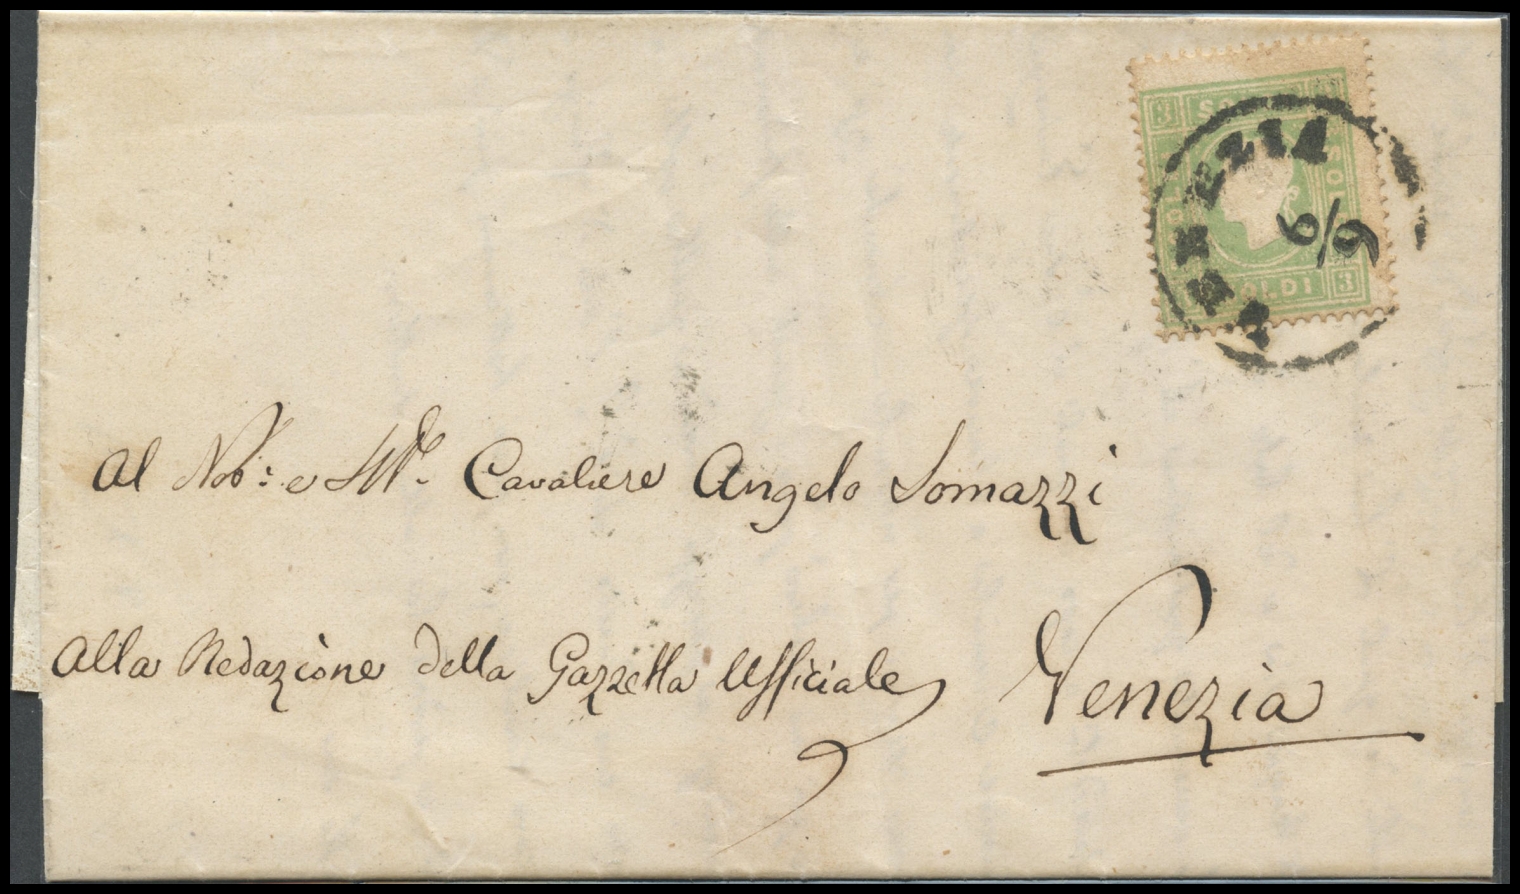 3 SOLDI
SOLDI 3
VENEZIA
6/9
Al Nob: e Ill.e Cavaliere Angelo Somazzi
Alla Redazione della Gazzetta Ufficiale
Venezia